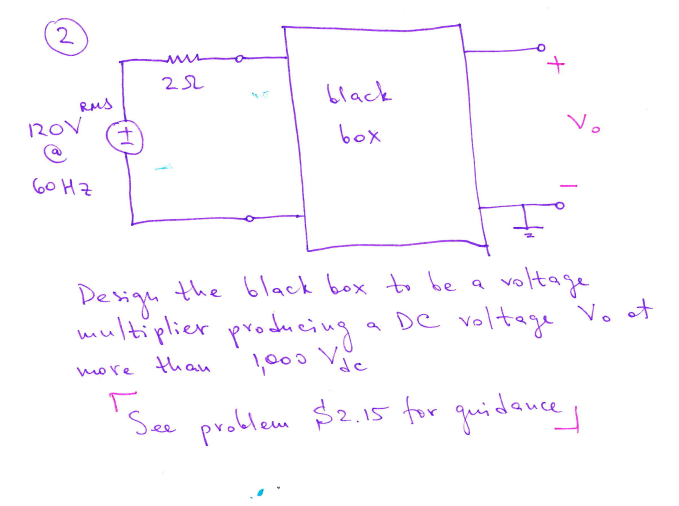 2
2Ω
RMS
120V
@
60Hz
±
black
box
+
Vo
−
Design the black box to be a voltage
multiplier producing a DC voltage Vo at
more than 1,000 Vdc
「See problem S2.15 for guidance」